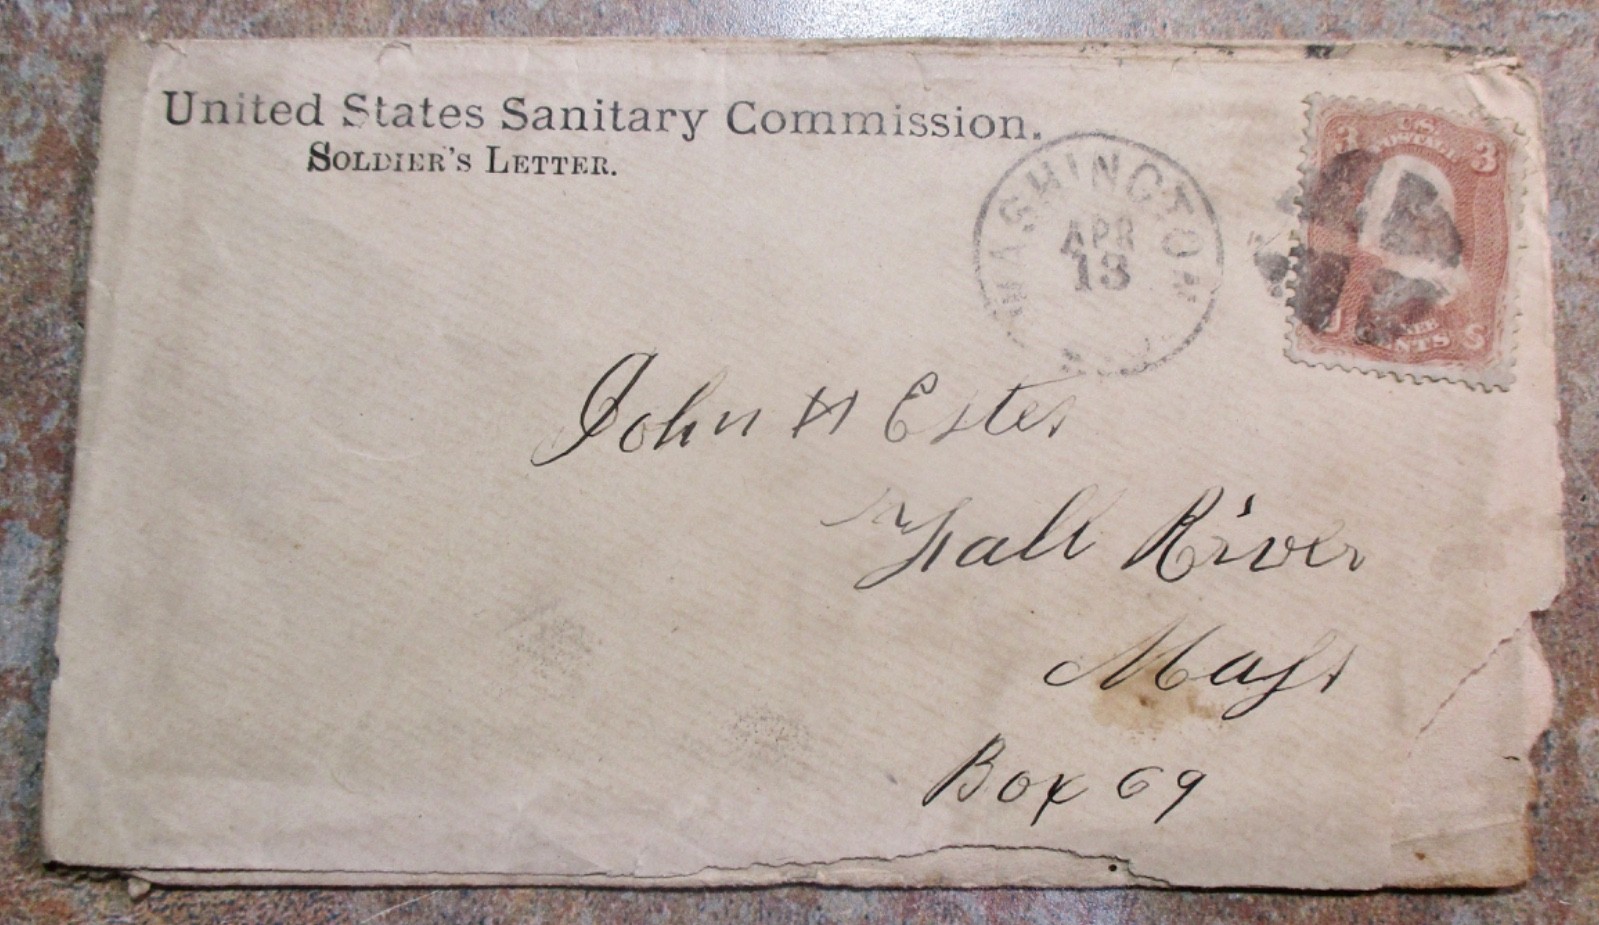 United States Sanitary Commission.
Soldier's Letter.
WASHINGTON
APR
13
3 U.S. 3
POSTAGE
CENTS
John H Estes
Fall River
Maſs
Box 69